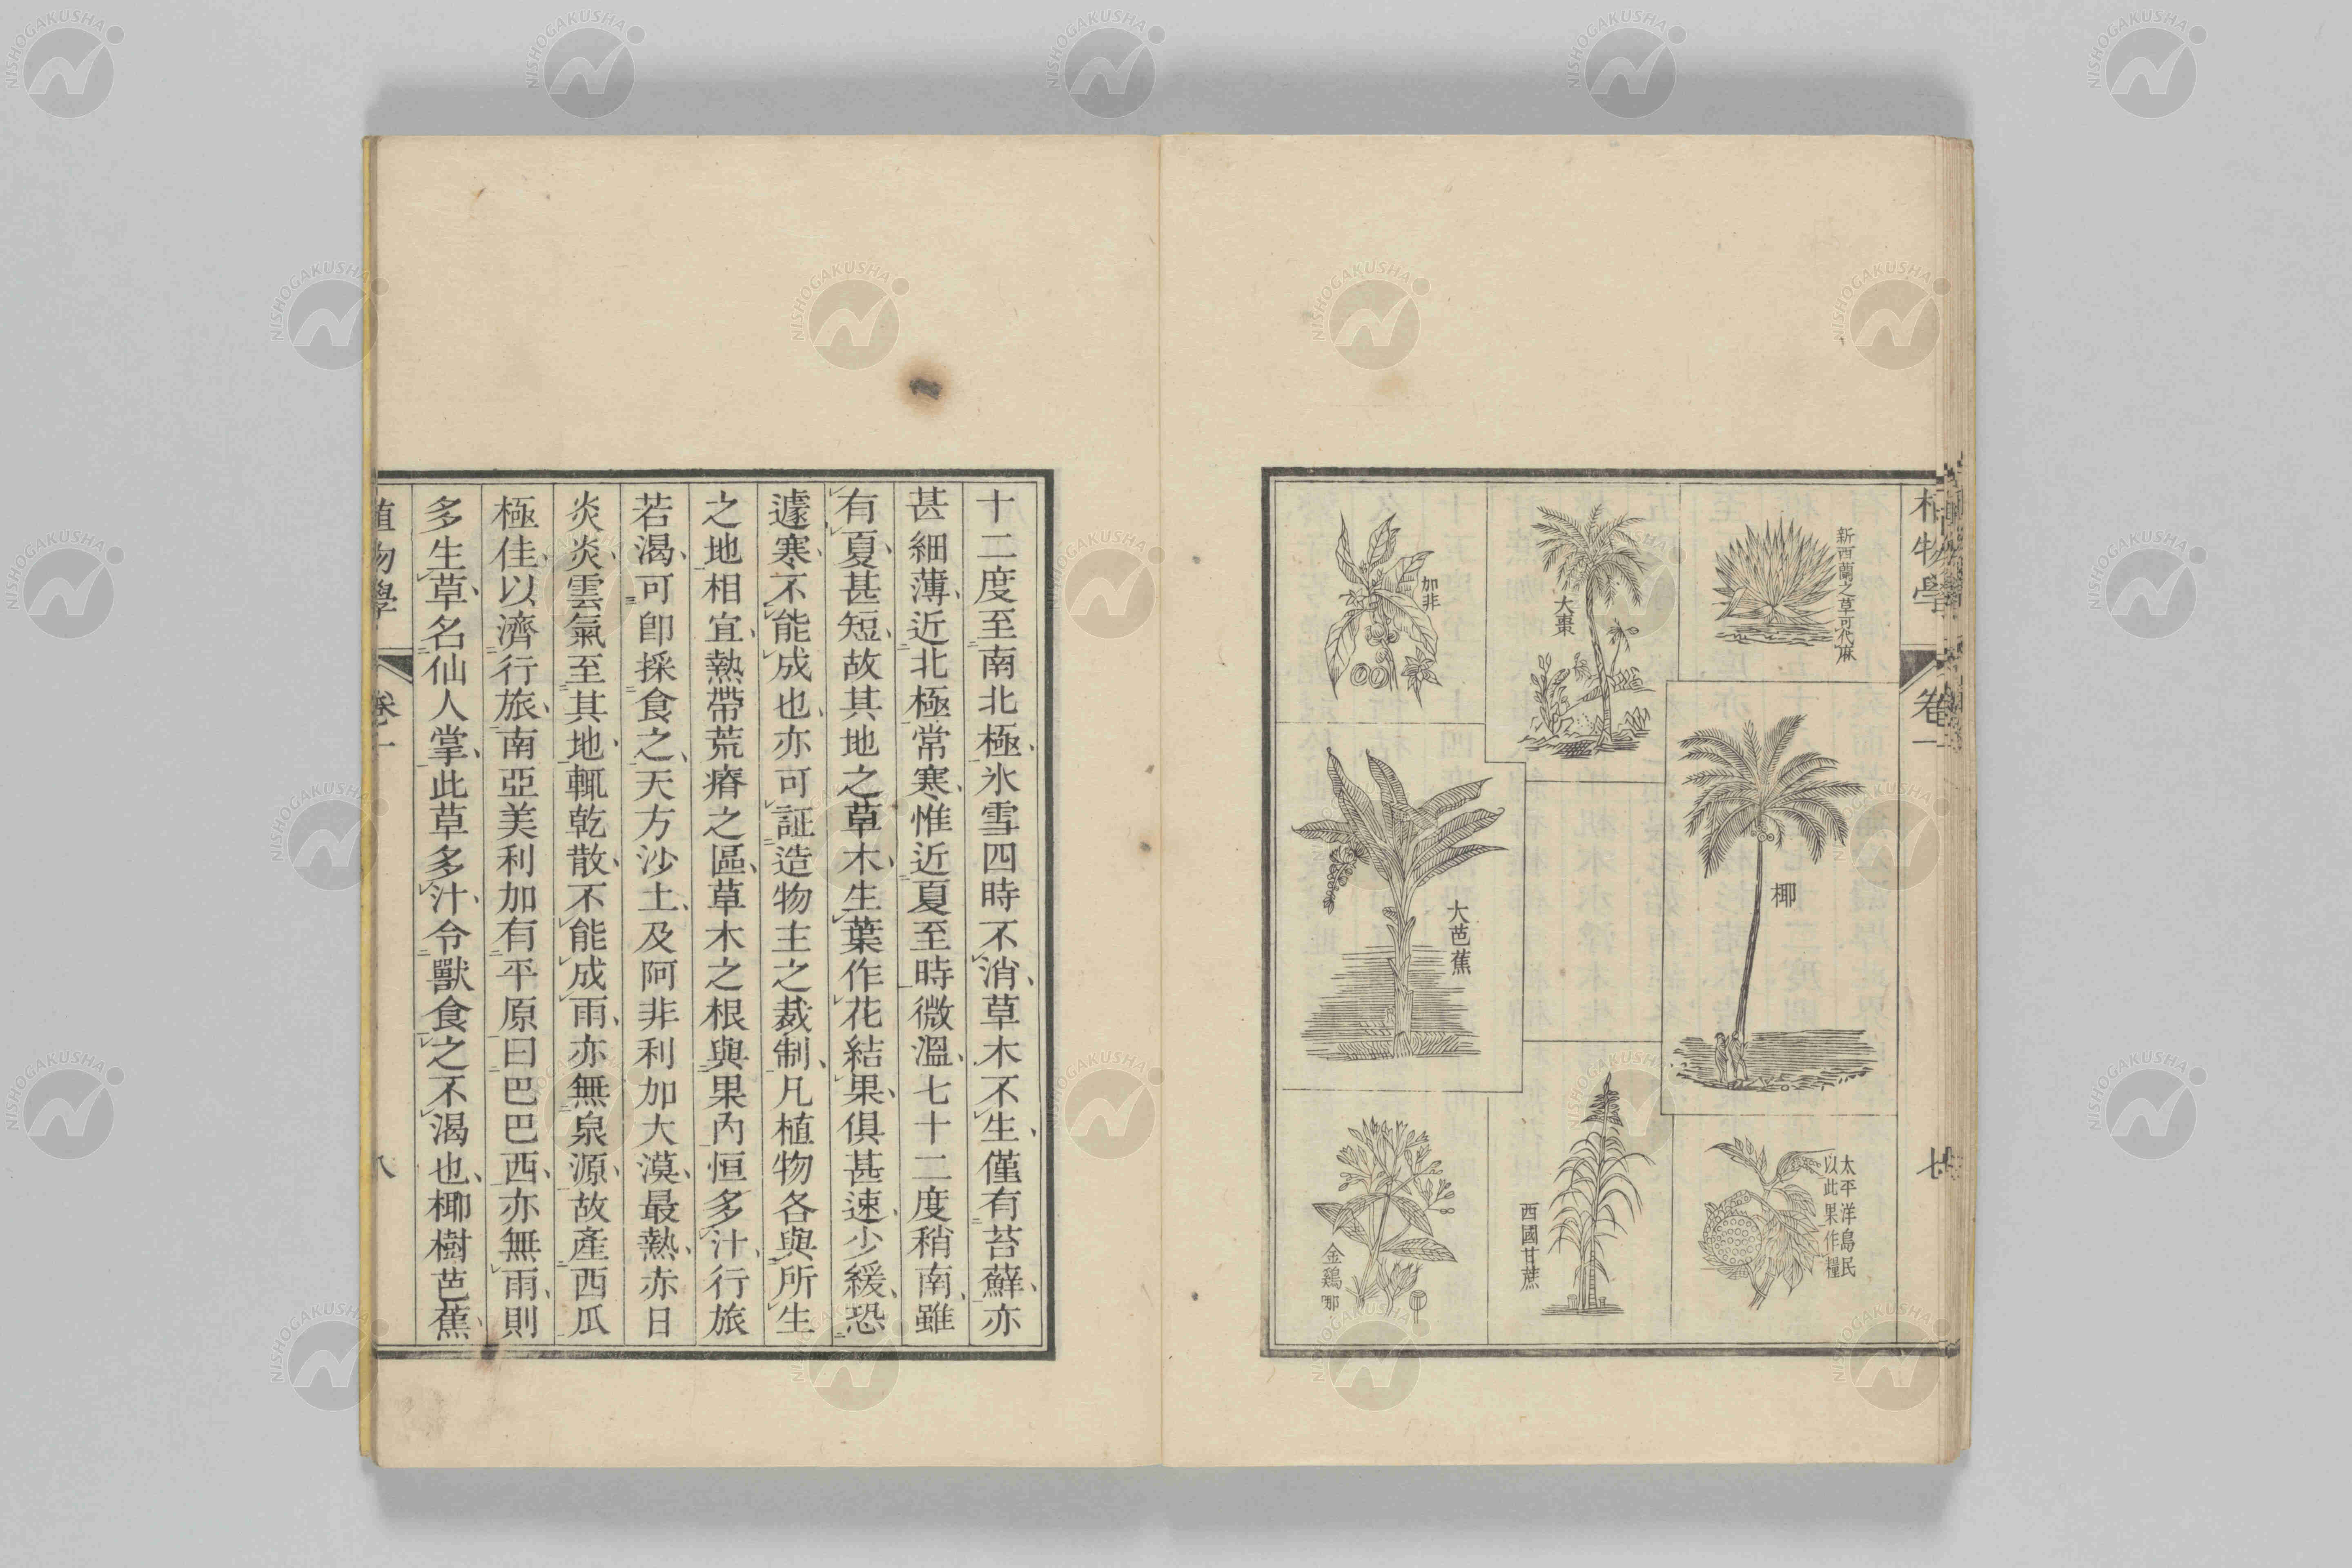 植物學
卷一
七
新西蘭之草可代麻
大棗
加非
椰
大芭蕉
太平洋島民
以此果作糧
西國甘蔗
金鷄哪
十二度至南北極氷雪四時不消草木不生僅有苔蘚亦
甚細薄近北極常寒惟近夏至時微溫七十二度稍南雖
有夏甚短故其地之草木生葉作花結果俱甚速少緩恐
遽寒不能成也亦可証造物主之裁制凡植物各與所生
之地相宜熱帶荒瘠之區草木之根與果內恒多汁行旅
若渴可卽採食之天方沙土及阿非利加大漠最熱赤日
炎炎雲氣至其地輒乾散不能成雨亦無泉源故產西瓜
極佳以濟行旅南亞美利加有平原曰巴巴西亦無雨則
多生草名仙人掌此草多汁令獸食之不渴也椰樹芭蕉
植物學
卷一
八
NISHOGAKUSHA
NISHOGAKUSHA
NISHOGAKUSHA
NISHOGAKUSHA
NISHOGAKUSHA
NISHOGAKUSHA
NISHOGAKUSHA
NISHOGAKUSHA
NISHOGAKUSHA
NISHOGAKUSHA
NISHOGAKUSHA
NISHOGAKUSHA